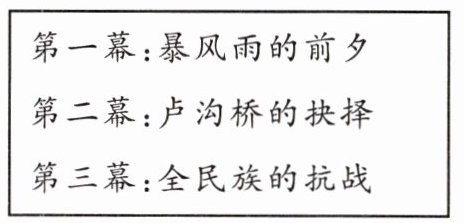 第一幕:暴风雨的前夕
第二幕:卢沟桥的抉择
第三幕:全民族的抗战